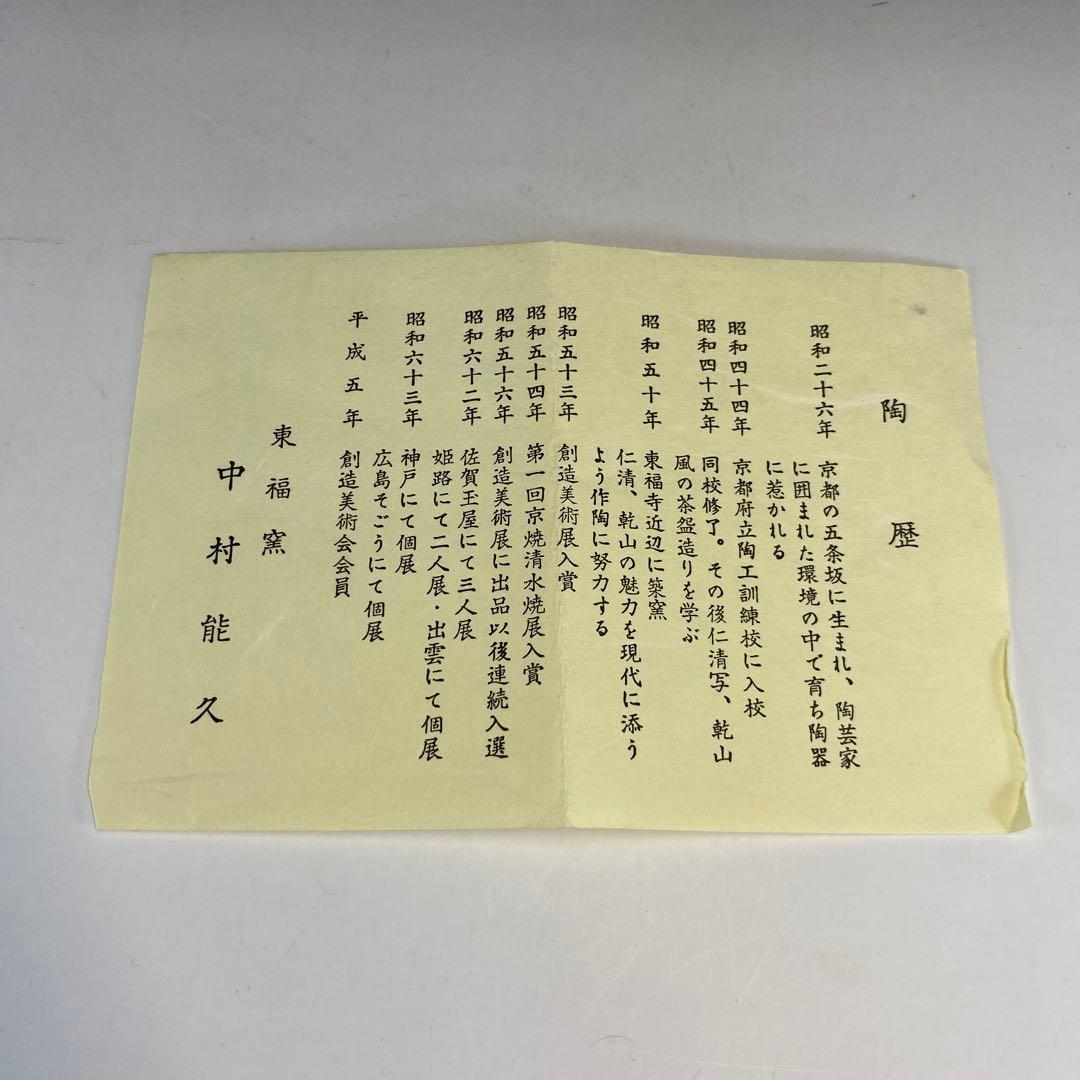 陶歴
昭和二十六年 京都の五条坂に生まれ、陶芸家
に囲まれた環境の中で育ち陶器
に惹かれる
昭和四十四年 京都府立陶工訓練校に入校
昭和四十五年 同校修了。その後仁清写、乾山
風の茶盌造りを学ぶ
昭和五十年 東福寺近辺に築窯
仁清、乾山の魅力を現代に添う
よう作陶に努力する
昭和五十三年 創造美術展入賞
昭和五十四年 第一回京焼清水焼展入賞
昭和五十六年 創造美術展に出品以後連続入選
昭和六十二年 佐賀玉屋にて三人展
姫路にて二人展・出雲にて個展
昭和六十三年 神戸にて個展
広島そごうにて個展
平成五年 創造美術会会員
東福窯
中村能久